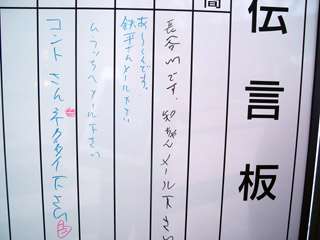 伝言板
間
長谷川です。和ちゃんメール下さい
あ〜くんです。
鉄平さんメール下さい
ムラッチへメール下さい
コントさんネクタイ下さい